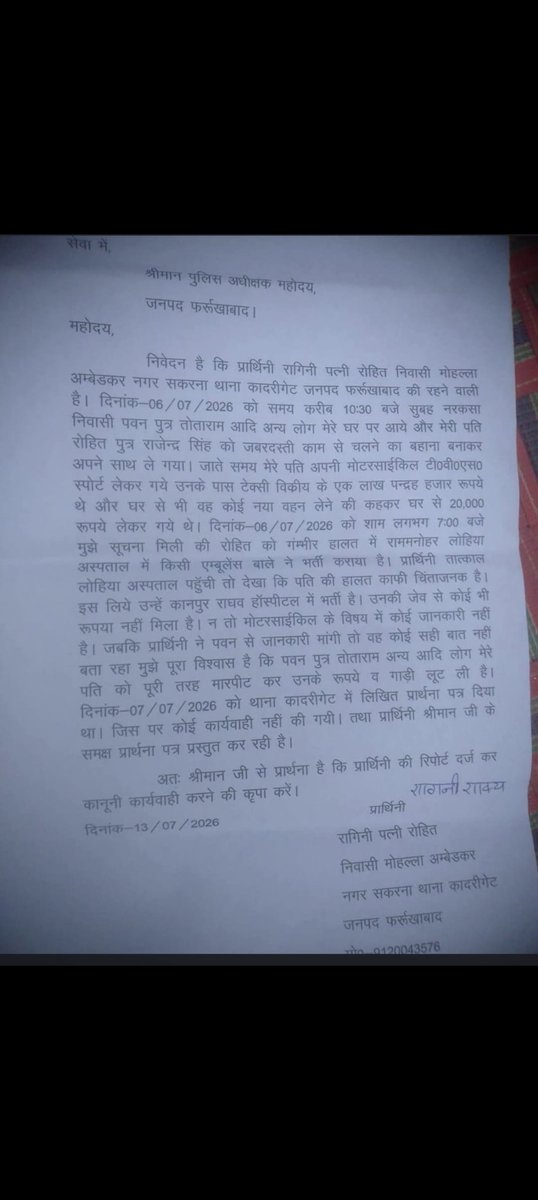 सेवा में,
श्रीमान पुलिस अधीक्षक महोदय,
जनपद फर्रूखाबाद।
महोदय,
निवेदन है कि प्रार्थिनी रागिनी पत्नी रोहित निवासी मोहल्ला
अम्बेडकर नगर सकरना थाना कादरीगेट जनपद फर्रूखाबाद की रहने वाली
है। दिनांक–06/07/2026 को समय करीब 10:30 बजे सुबह नरकसा
निवासी पवन पुत्र तोताराम आदि अन्य लोग मेरे घर पर आये और मेरी पति
रोहित पुत्र राजेन्द्र सिंह को जबरदस्ती काम से चलने का बहाना बनाकर
अपने साथ ले गया। जाते समय मेरे पति अपनी मोटरसाईकिल टी०वी०एस०
स्पोर्ट लेकर गये उनके पास टेक्सी विकीय के एक लाख पन्द्रह हजार रूपये
थे और घर से भी वह कोई नया वहन लेने की कहकर घर से 20,000
रूपये लेकर गये थे। दिनांक–06/07/2026 को शाम लगभग 7:00 बजे
मुझे सूचना मिली की रोहित को गंम्भीर हालत में राममनोहर लोहिया
अस्पताल में किसी एम्बूलेंस बाले ने भर्ती कराया है। प्रार्थिनी तात्काल
लोहिया अस्पताल पहुँची तो देखा कि पति की हालत काफी चिंताजनक है।
इस लिये उन्हें कानपुर राघव हॉस्पीटल में भर्ती है। उनकी जेव से कोई भी
रूपया नहीं मिला है। न तो मोटरसाईकिल के विषय में कोई जानकारी नहीं
है। जबकि प्रार्थिनी ने पवन से जानकारी मांगी तो वह कोई सही बात नहीं
बता रहा मुझे पूरा विश्वास है कि पवन पुत्र तोताराम अन्य आदि लोग मेरे
पति को पूरी तरह मारपीट कर उनके रूपये व गाड़ी लूट ली है।
दिनांक–07/07/2026 को थाना कादरीगेट में लिखित प्रार्थना पत्र दिया
था। जिस पर कोई कार्यवाही नहीं की गयी। तथा प्रार्थिनी श्रीमान जी के
समक्ष प्रार्थना पत्र प्रस्तुत कर रही है।
अतः श्रीमान जी से प्रार्थना है कि प्रार्थिनी की रिपोर्ट दर्ज कर
कानूनी कार्यवाही करने की कृपा करें।
रागनी शाक्य
दिनांक–13/07/2026
प्रार्थिनी
रागिनी पत्नी रोहित
निवासी मोहल्ला अम्बेडकर
नगर सकरना थाना कादरीगेट
जनपद फर्रूखाबाद
मो०–9120043576